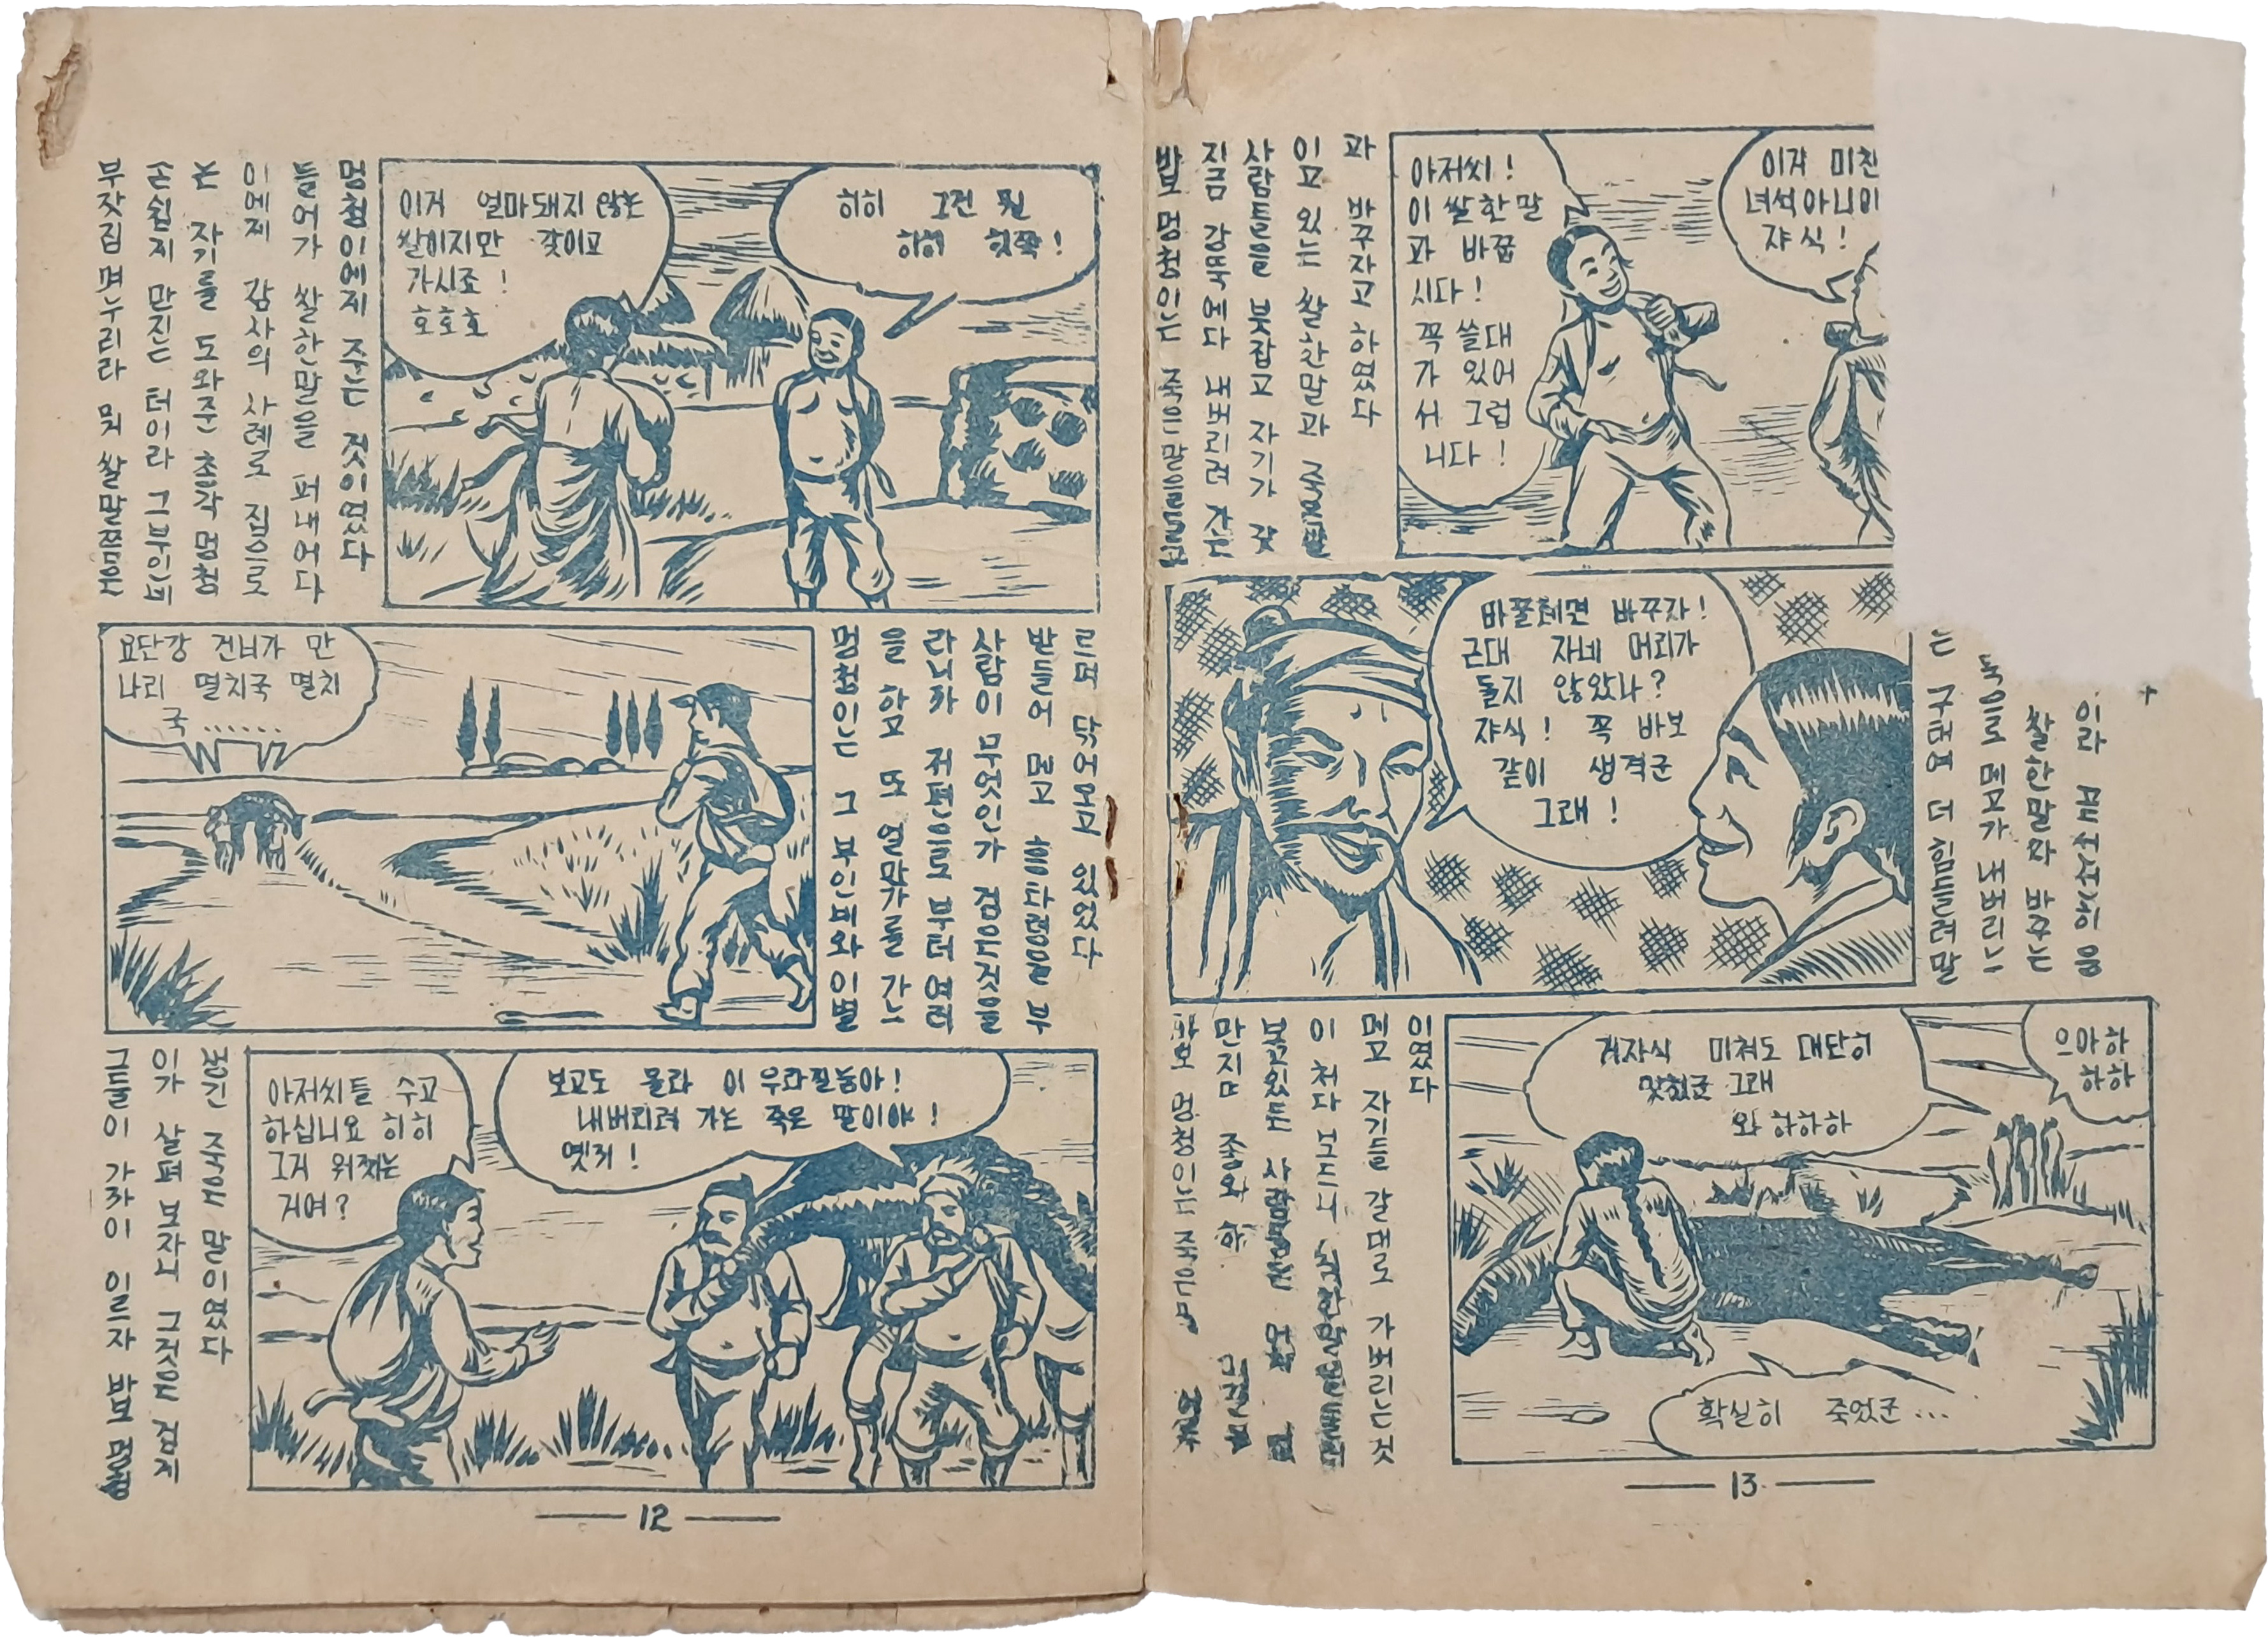 부잣집 며누리라 뭐 쌀말쯤은
손쉽게 만진는 터이라 그부인네
는 자기를 도와준 총각 멍청
이에게 감사의 사례로 집으로
들어가 쌀한말을 퍼내어다
멍청이에게 주는 것이였다
이거 얼마돼지 않는
쌀이지만 갖이고
가시죠 !
호호호
히히 그건 뭔
히히 힛쭉 !
요단강 건너가 만
나리 멸치국 멸치
국 ......
멍청인는 그 부인네와 이별
을 하고 또 얼마가를 가느
라니까 저편으로 부터 여러
사람이 무엇인가 검은것을
받들어 메고 흥타령을 부
르며 닦어오고 있었다
그들이 가까이 이르자 바보 멍청
이가 살펴 보자니 그것은 검게
생긴 죽은 말이였다
아저씨들 수고
하십니요 히히
그거 워찌는
거여?
보고도 몰라 이 우라질놈아!
내버리려 가는 죽은 말이야 !
옛키 !
12
바보 멍청인는 죽은말을들고
지금 강뚝에다 내버리려 가는
사람들을 붓잡고 자기가 갖
이고 있는 쌀한말과 죽은말
과 바꾸자고 하였다
아저씨 !
이 쌀한말
과 바꿉
시다 !
꼭 쓸대
가 있어
서 그럽
니다 !
이자 미친
녀석아니이
쟈식 !
바꿀혜면 바꾸자 !
근대 자네 머리가
돌지 않았나 ?
쟈식 ! 꼭 바보
같이 생격군
그래 !
는 구태여 더 힘들려 말
죽으로 메고가 내버리느
쌀한말과 바꾸는
이라 곧 서선히 응
바보 멍청인는 죽은
만지며 좋와 하
보고있든 사람들은
이 처다 보드니 쌀한말을들러
메고 자기들 갈대로 가버리는것
이였다
겨자식 미쳐도 대단히
맞첬군 그래
와 하하하
으아하
하하
확실히 죽었군 ...
13